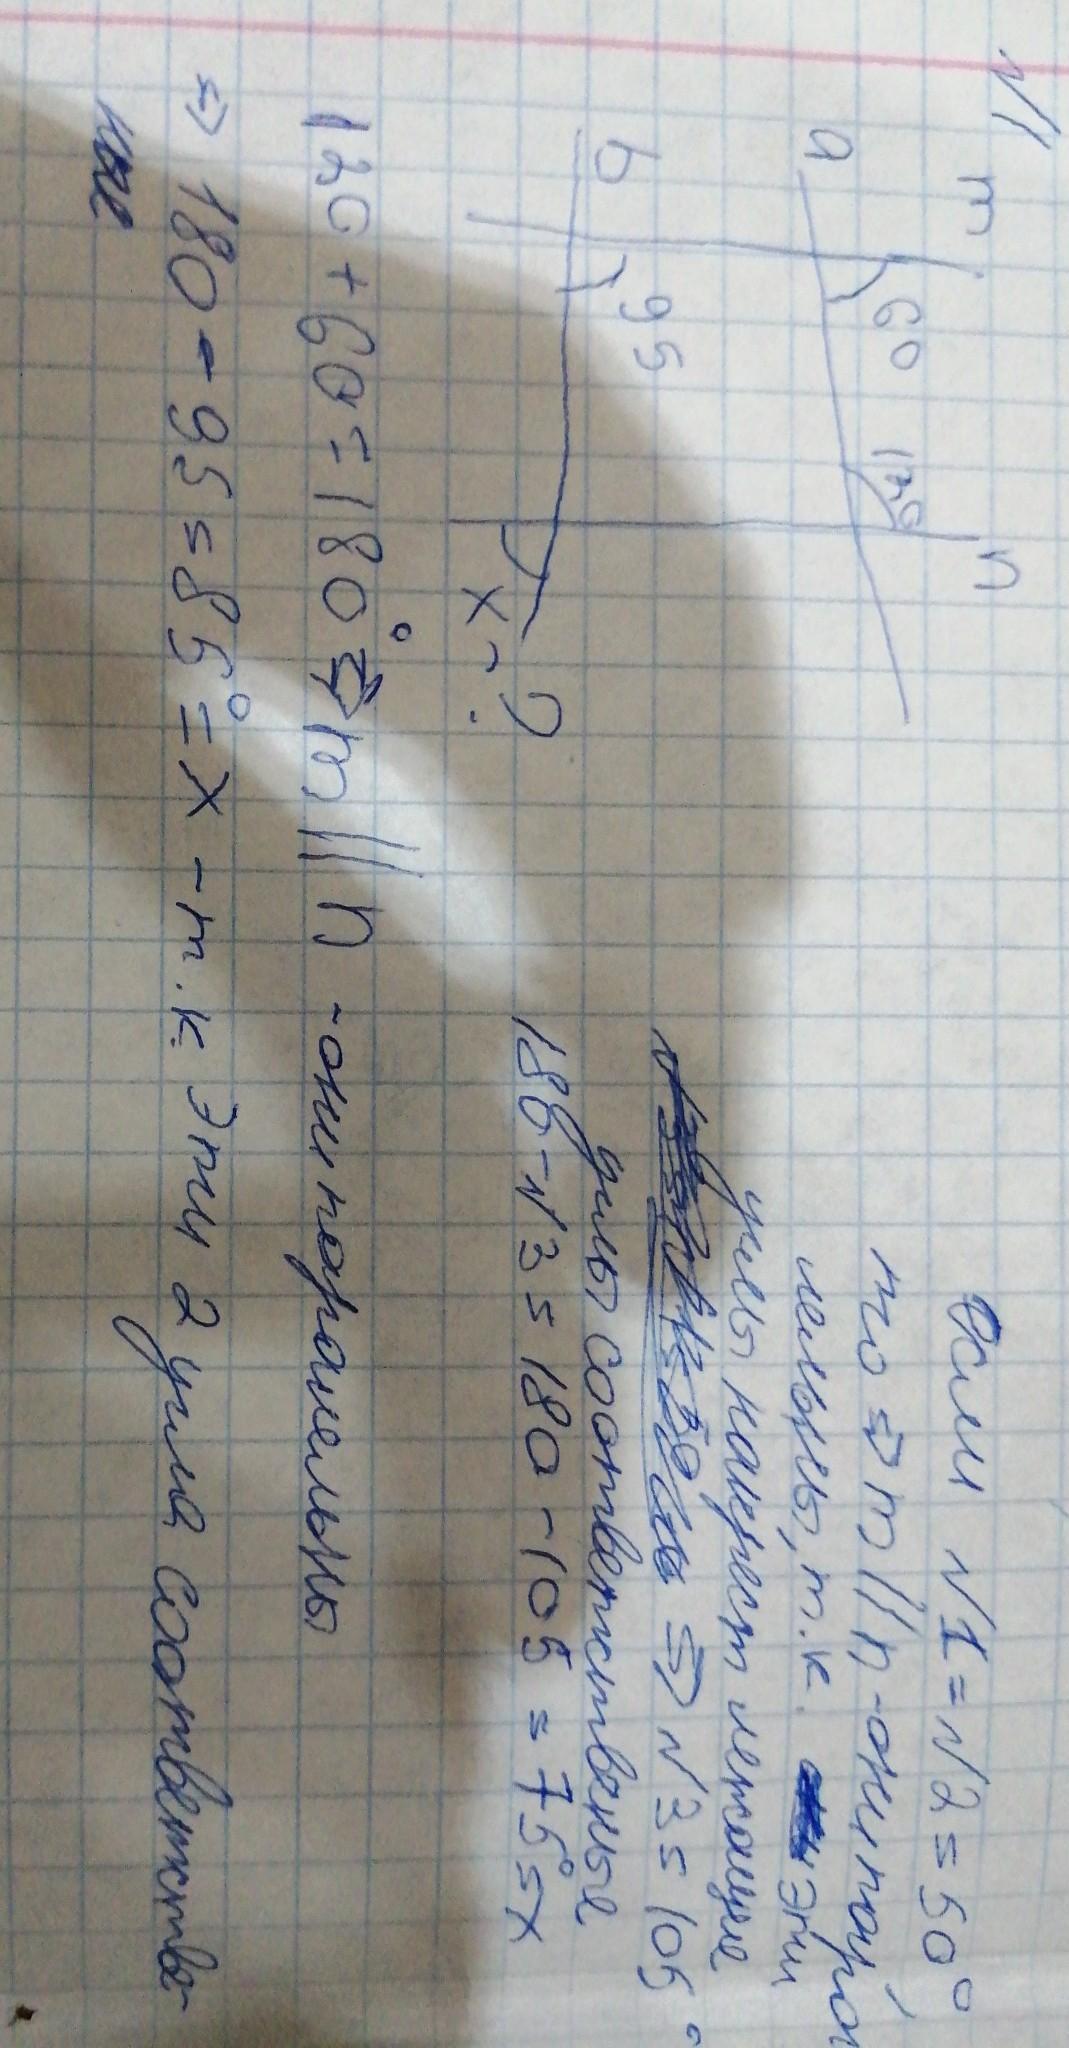 №1
m
n
a
60
120
b
95
x - ?
120 + 60 = 180° => m || n - они паралельны
=> 180 - 95 = 85° = x - т.к. эти 2 угла соответстве-
ные
Если √1 = √2 = 50°
то => m || n - они парал
лельны, т.к. эти
углы накрест лежащие
=> √3 = 105°
углы соответственые
180 - √3 = 180 - 105 = 75° = x